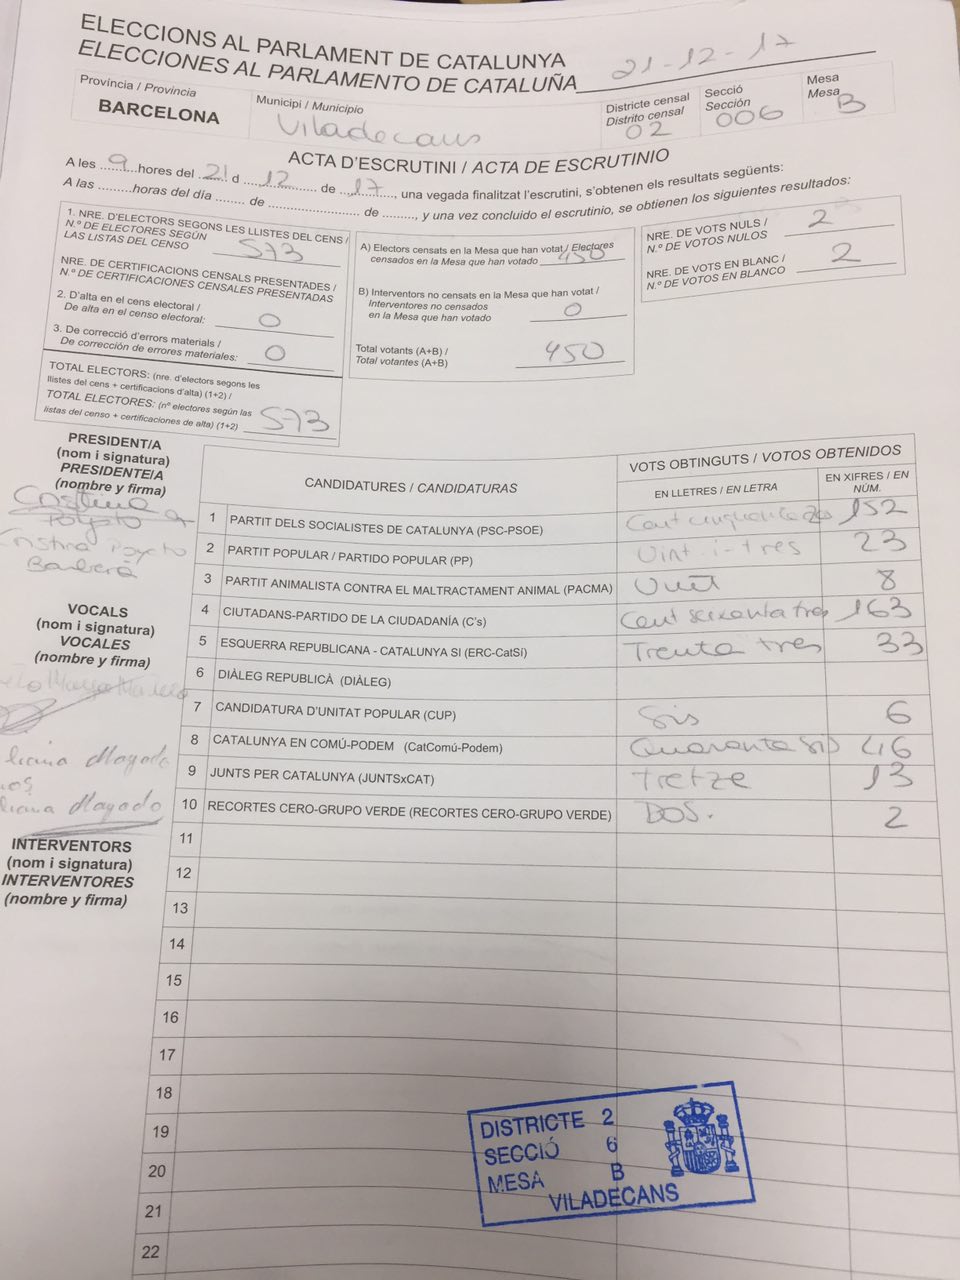 ELECCIONS AL PARLAMENT DE CATALUNYA
ELECCIONES AL PARLAMENTO DE CATALUÑA 21-12-17
Província / Provincia
BARCELONA
Municipi / Municipio
Viladecans
Districte censal
Distrito censal
02
Secció
Sección
006
Mesa
Mesa
B
ACTA D'ESCRUTINI / ACTA DE ESCRUTINIO
A les 9 hores del 21 d 12 de 17, una vegada finalitzat l'escrutini, s'obtenen els resultats següents:
A las ........ horas del día ........ de ........ de ........, y una vez concluido el escrutinio, se obtienen los siguientes resultados:
1. NRE. D'ELECTORS SEGONS LES LLISTES DEL CENS /
N.º DE ELECTORES SEGÚN
LAS LISTAS DEL CENSO 573
NRE. DE CERTIFICACIONS CENSALS PRESENTADES /
N.º DE CERTIFICACIONES CENSALES PRESENTADAS
2. D'alta en el cens electoral /
De alta en el censo electoral: 0
3. De correcció d'errors materials /
De corrección de errores materiales: 0
TOTAL ELECTORS: (nre. d'electors segons les
llistes del cens + certificacions d'alta) (1+2) /
TOTAL ELECTORES: (nº electores según las
listas del censo + certificaciones de alta) (1+2) 573
A) Electors censats en la Mesa que han votat / Electores
censados en la Mesa que han votado 450
B) Interventors no censats en la Mesa que han votat /
Interventores no censados
en la Mesa que han votado 0
Total votants (A+B) /
Total votantes (A+B) 450
NRE. DE VOTS NULS /
N.º DE VOTOS NULOS 2
NRE. DE VOTS EN BLANC /
N.º DE VOTOS EN BLANCO 2
PRESIDENT/A
(nom i signatura)
PRESIDENTE/A
(nombre y firma)
Cristina
Poyato
Cristina Poyato
Barberà
VOCALS
(nom i signatura)
VOCALES
(nombre y firma)
Mayado
Mayado
INTERVENTORS
(nom i signatura)
INTERVENTORES
(nombre y firma)
CANDIDATURES / CANDIDATURAS
VOTS OBTINGUTS / VOTOS OBTENIDOS
EN LLETRES / EN LETRA
EN XIFRES / EN
NÚM.
1 PARTIT DELS SOCIALISTES DE CATALUNYA (PSC-PSOE) Cent cinquanta dos 152
2 PARTIT POPULAR / PARTIDO POPULAR (PP) Vint-i-tres 23
3 PARTIT ANIMALISTA CONTRA EL MALTRACTAMENT ANIMAL (PACMA) Vuit 8
4 CIUTADANS-PARTIDO DE LA CIUDADANÍA (C's) Cent seixanta tres 163
5 ESQUERRA REPUBLICANA - CATALUNYA SI (ERC-CatSí) Trenta tres 33
6 DIÀLEG REPUBLICÀ (DIÀLEG)
7 CANDIDATURA D'UNITAT POPULAR (CUP) Sis 6
8 CATALUNYA EN COMÚ-PODEM (CatComú-Podem) Quaranta sis 46
9 JUNTS PER CATALUNYA (JUNTSxCAT) tretze 13
10 RECORTES CERO-GRUPO VERDE (RECORTES CERO-GRUPO VERDE) DOS. 2
11
12
13
14
15
16
17
18
19
20
21
22
DISTRICTE 2
SECCIÓ 6
MESA B
VILADECANS